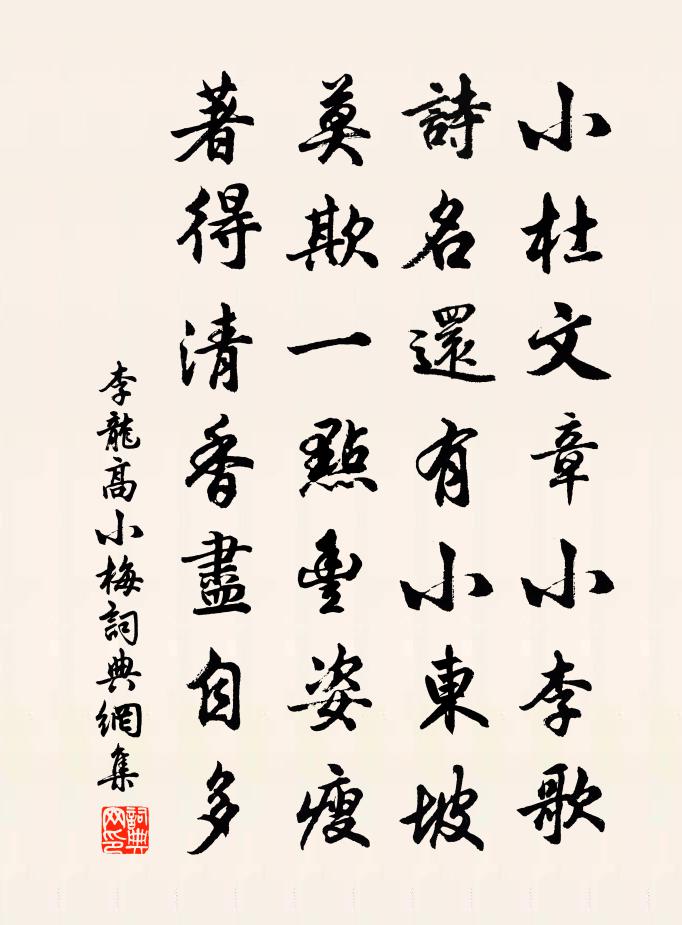 小杜文章小李歌
詩名還有小東坡
莫欺一點豐姿瘦
著得清香盡自多
李龍高小梅詞典網集
詞典网印